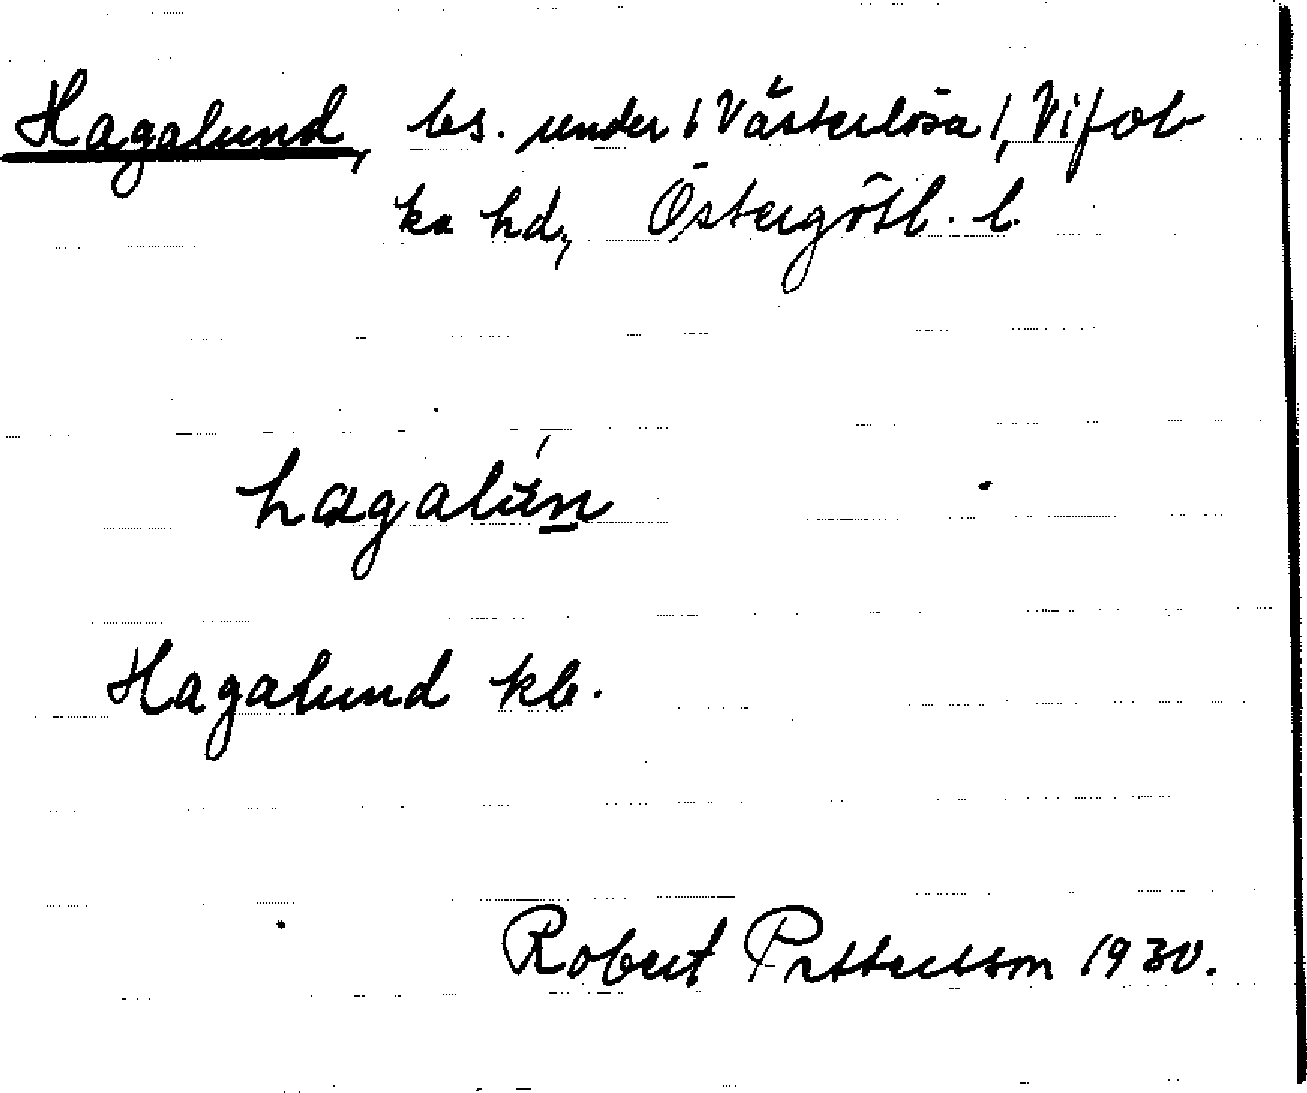 Hagalund, bs. under / Västerlösa /, Vifob
ka hd, Östergötl. l.
hagalún
Hagalund kb.
Robert Pettersson 1930.